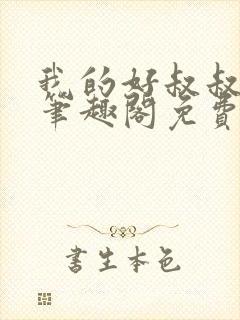 我的好叔叔
笔趣阁免费
書生本色